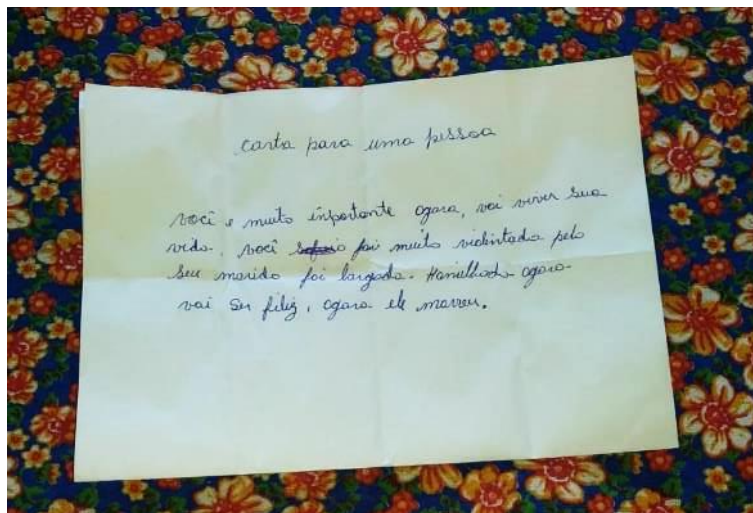 carta para uma pessoa
você e muito inportante agara, vai viver sua
vida, você foi muito violintada pelo
seu marido foi largada. Hamilhada agara
vai ser feliz, agara ele marreu.